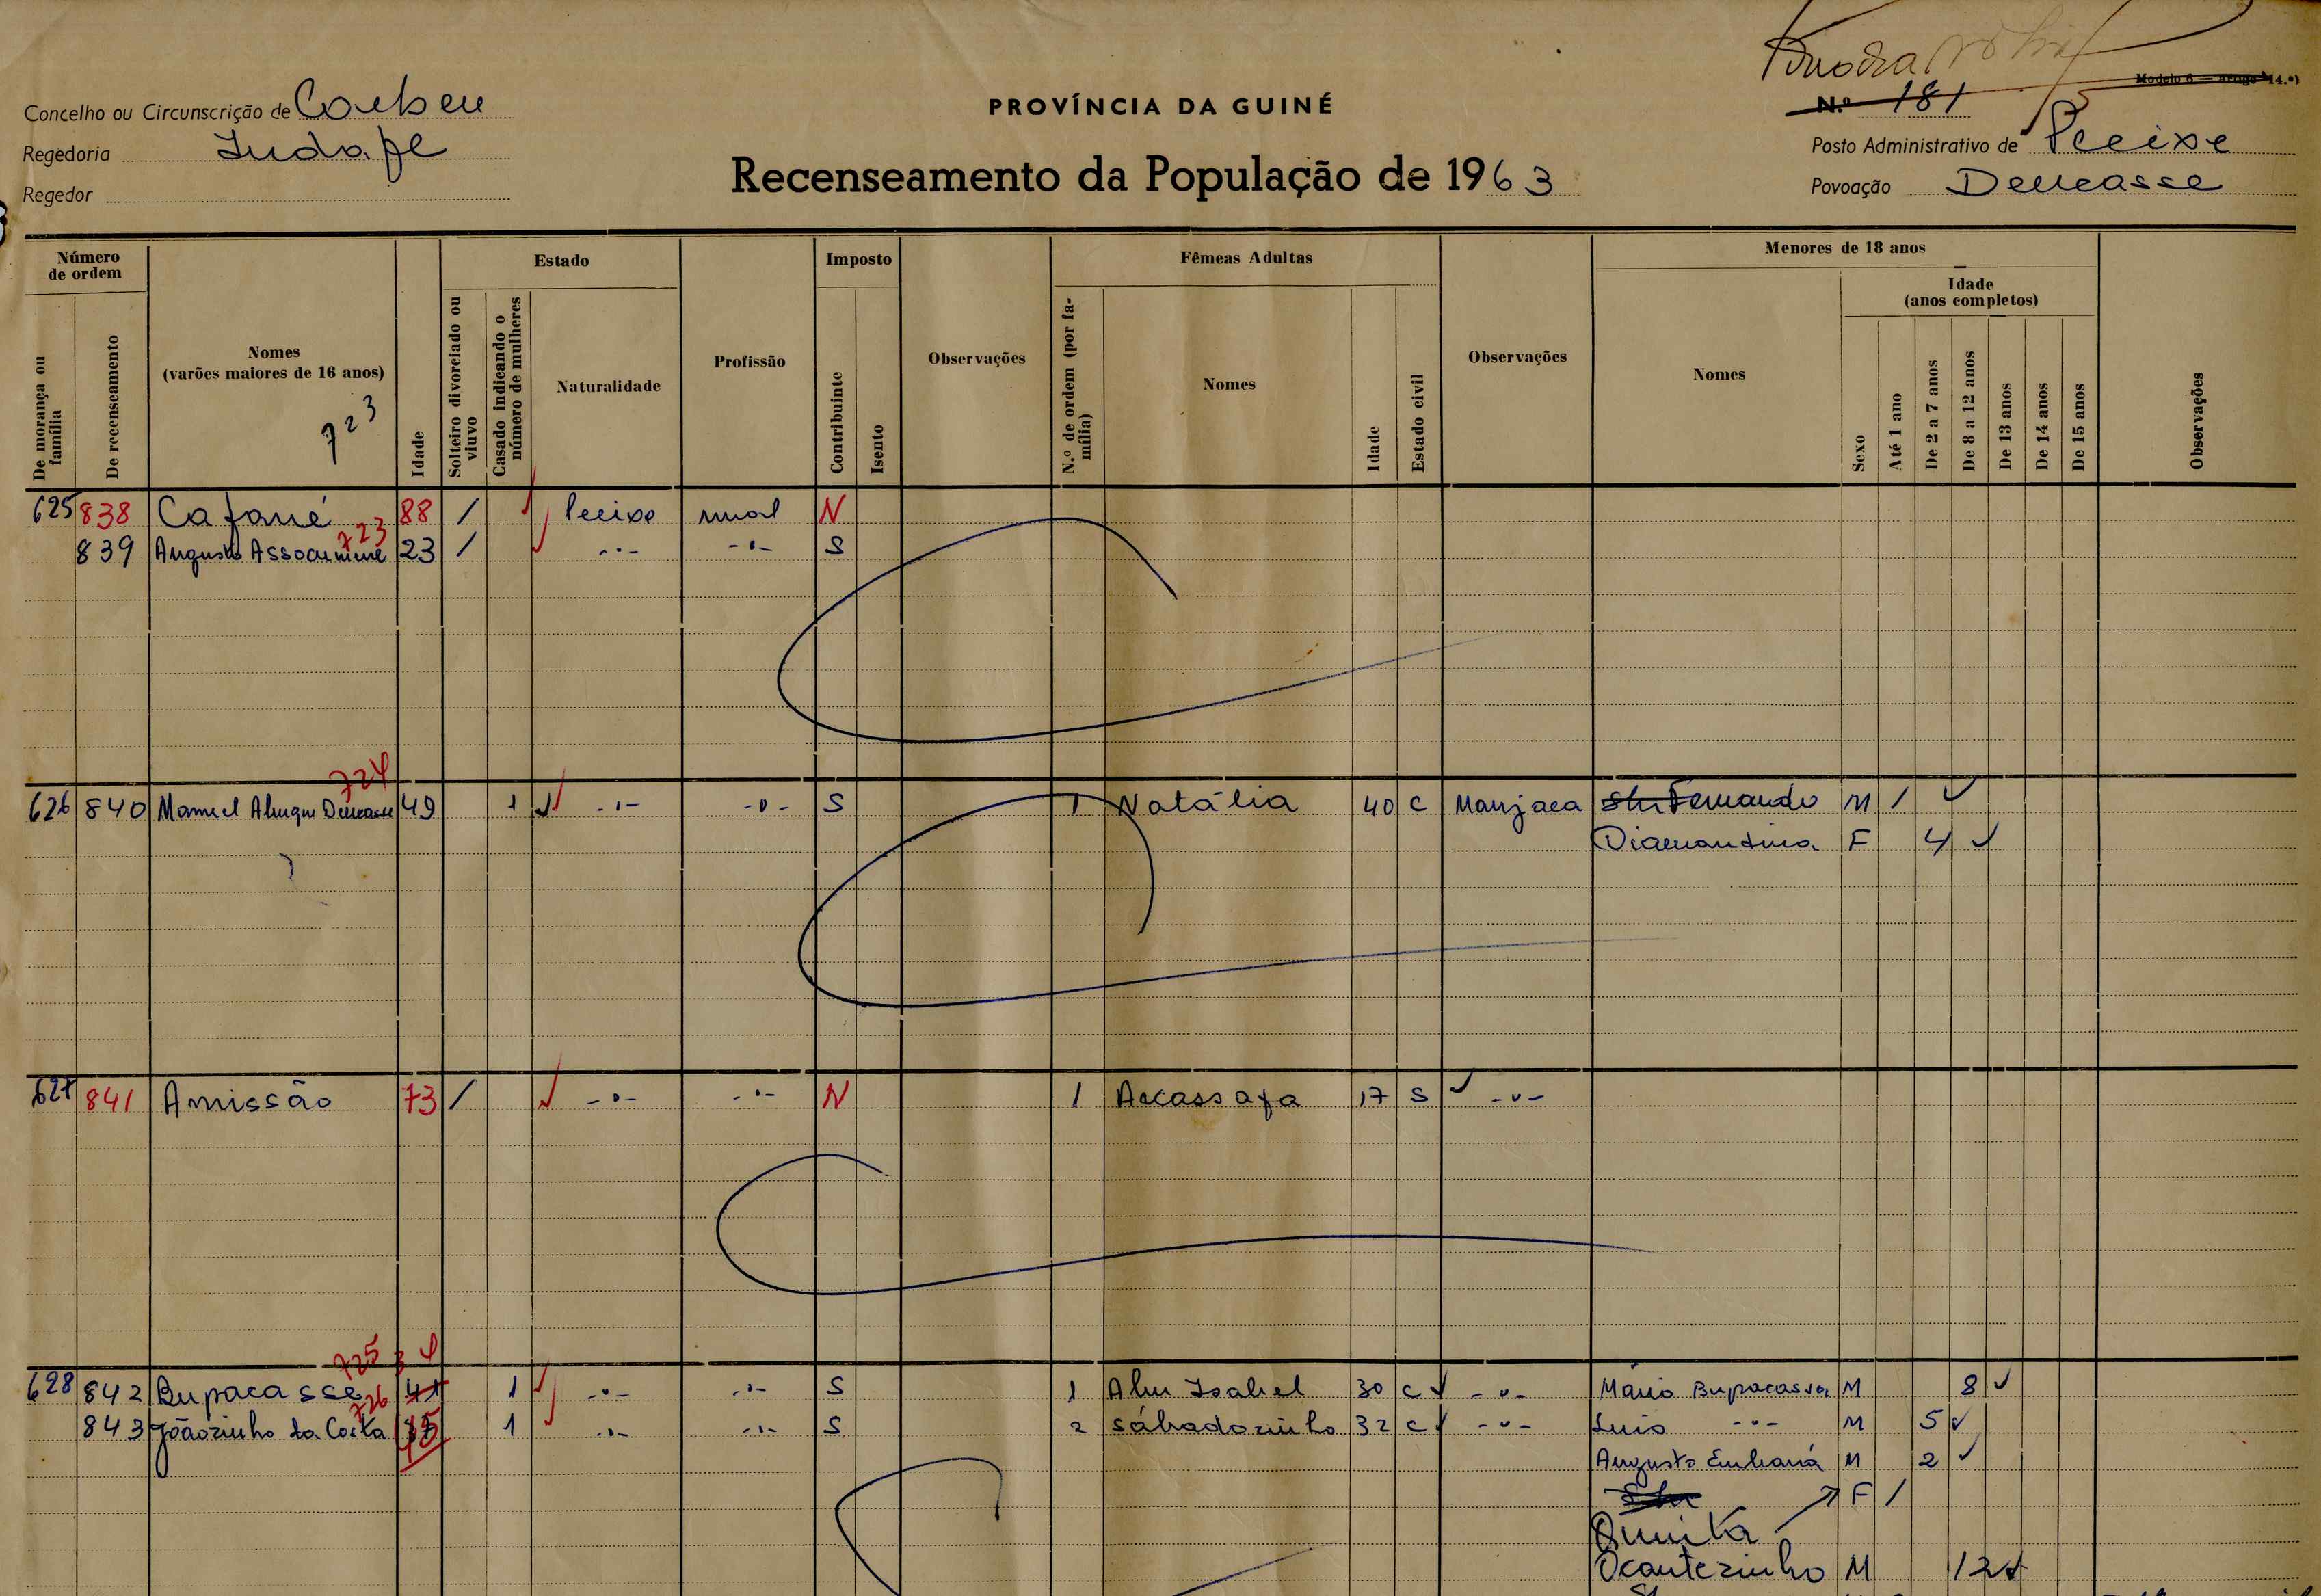 PROVÍNCIA DA GUINÉ
Recenseamento da População de 1963
Concelho ou Circunscrição de
Regedoria
Regedor
Modelo 6 — Artigo 14.º)
N.º 181
Posto Administrativo de Pecixe
Povoação Demcasse
Número de ordem
De morança ou família
De recenseamento
Nomes
(varões maiores de 16 anos)
723
Idade
Estado
Solteiro divorciado ou viuvo
Casado indicando o número de mulheres
Naturalidade
Profissão
Imposto
Contribuinte
Isento
Observações
Fêmeas Adultas
N.º de ordem (por família)
Nomes
Idade
Estado civil
Observações
Menores de 18 anos
Nomes
Sexo
Idade
(anos completos)
Até 1 ano
De 2 a 7 anos
De 8 a 12 anos
De 13 anos
De 14 anos
De 15 anos
Observações
625 838 Cafané 88 / Pecixe rural N
723
839 Augusto 23 / -"- -"- S
724
626 840 Manuel 49 1 -"- -"- S 1 Natália 40 C Manjaca Fernando M /
Diamantina F 4
627 841 Amissão 73 / -"- -"- N 1 17 S -"-
725 34
628 842 Bupacasse 41 1 -"- -"- S 1 Isabel 30 C -"- Mário Bupacassa M 8
726
843 Jõaozinho da Costa 45 1 -"- -"- S 2 Sábadozinho 32 C -"- Luis -"- M 5
Augusto M 2
F /
Quinta
Ocantezinho M 12